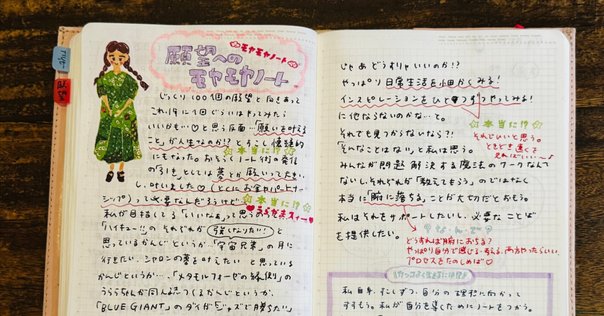 願望への
モヤモヤノート
モヤモヤノート
じっくり100個の願望と向きあって
これ1年に1回ぐらいはやってみたら
いいかも…♡と思う反面…「願いを叶える
こと」が人生なのか!?とちょっと懐疑的
本当に!?
にもなった。おもちゃノート術の発信
の1つとしては 夢とか願いって大事
し、叶いました♡(とくにお金やパートナー
シップ)って必要なんだろうけど
本当に!?
私が目指してる「いいなぁ」って思う
「ハイキュー!!」のそれぞれが「強くなりたい」と
思っているかんじというか…「宇宙兄弟」の月に
行きたい、シャロンの夢を叶えたい と思っている
かんじというか…、「メタモルフォーゼの縁側」の
うららさんが同人誌つくるかんじというか、
「BLUE GIANT」のダイが「ジャズで勝ちたい」
じゃあ どうすりゃいいのか!?
やっぱり 日常生活を細かくみる!
インスピレーションをひとつずつやってみる!
に他ならないのかな…と。
本当に!?
それでも見つからないなら?!
それでいいと思う。
「そんなことはない」と私は思う。
ときどき遠くを
みればいい〜♪
みんなが問題 解決する魔法のワークなんて
ないし、それぞれが「教えてもらう」のではなく
本当に「腑に落ちる」ことが大切だとおもう。
私はそれをサポートしたいし、必要な ことば
を提供したい。
な・ん・で?
どうすれば腑におちる?
やっぱり自分で感じる・考える、両方やったらいい。
プロセスをたのしめば♡
私自身、すこしずつ、自分の理想に向かって
すすもう。私が自分を導くためにノートをつかう。